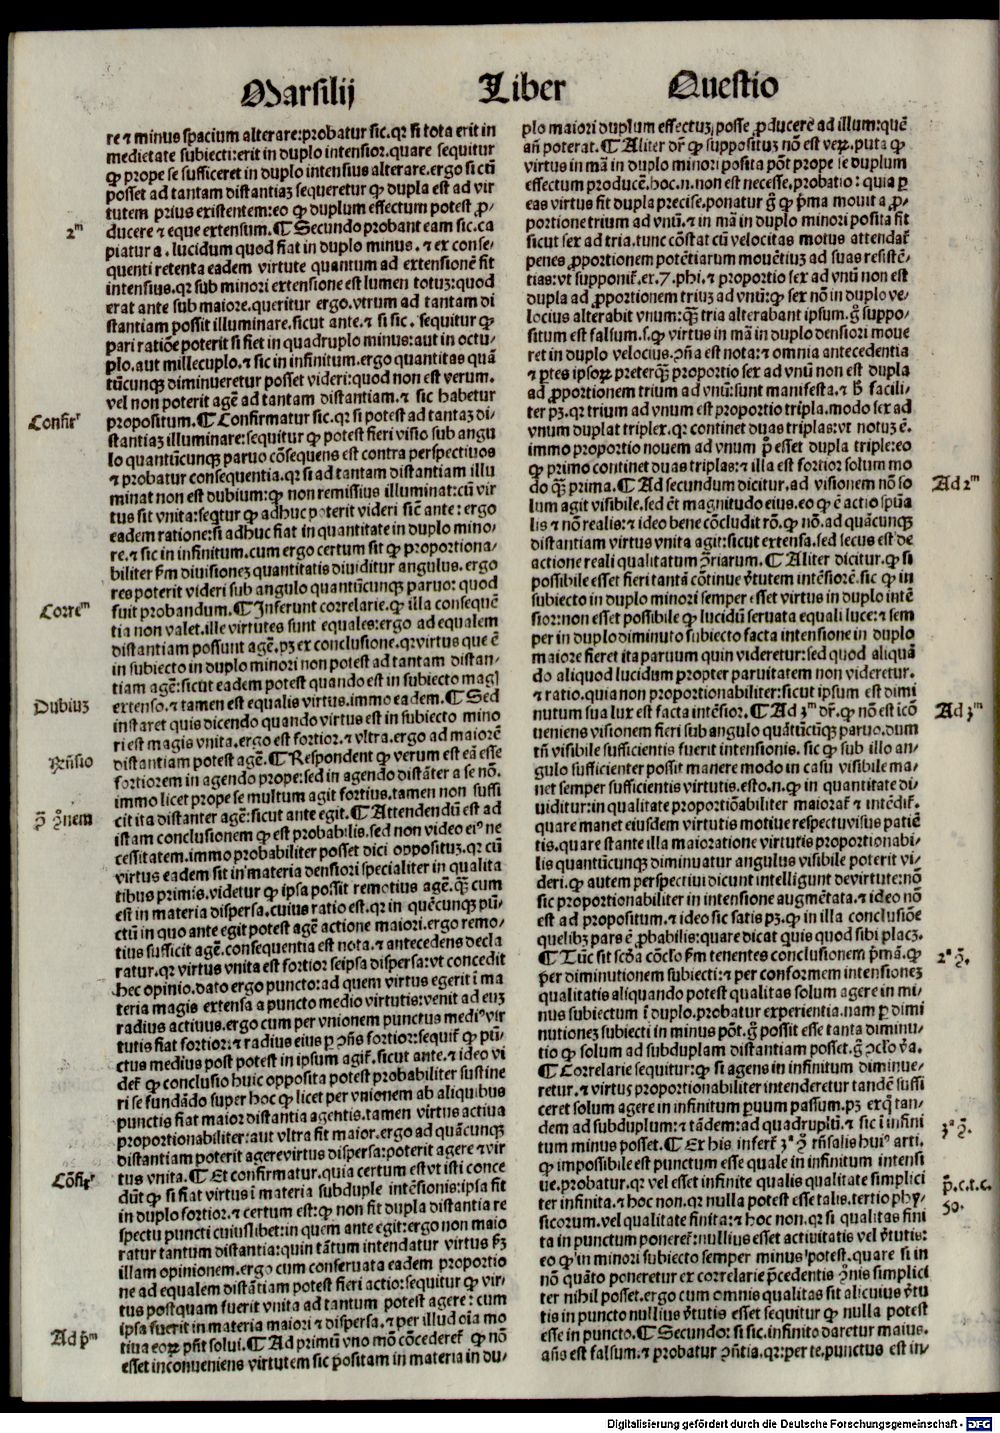 Marsilij Liber Questio
re ⁊ minus spacium alterare: probatur sic. qr si tota erit in
medietate subiecti: erit in duplo intensior. quare sequitur
ꝙ prope se sufficeret in duplo intensius alterare. ergo si cū
posset ad tantam distantiaz sequeretur ꝙ dupla est ad vir
tutem prius existentem: eo ꝙ duplum effectum potest ꝓ/
2ᵐ
ducere ⁊ eque extensum. ¶ Secundo probant eam sic. ca
piatur a. lucidum quod fiat in duplo minus. ⁊ ex conse/
quenti retenta eadem virtute quantum ad extensionē fit
intensius. qr sub minori extensione est lumen totuz: quod
erat ante sub maiore. queritur ergo. vtrum ad tantam di
stantiam possit illuminare. sicut ante. ⁊ si sic. sequitur ꝙ
pari ratiōe poterit si fiet in quadruplo minus: aut in octu/
plo. aut millecuplo. ⁊ sic in infinitum. ergo quantitas quā
tūcunqꝫ diminueretur posset videri: quod non est verum.
vel non poterit agē ad tantam distantiam. ⁊ sic habetur
Confirʳ
propositum. ¶ Confirmatur sic. qr si potest ad tantaz di/
stantiaz illuminare: sequitur ꝙ potest fieri visio sub angu
lo quantūcunqꝫ paruo cōsequens est contra perspectiuos
⁊ probatur consequentia. qr si ad tantam distantiam illu
minat non est dubium: ꝙ non remissius illuminat: cū vir
tus sit vnita: seqtur ꝙ adhuc poterit videri sicē ante: ergo
eadem ratione: si adhuc fiat in quantitate in duplo mino/
re. ⁊ sic in infinitum. cum ergo certum sit ꝙ proportiona/
biliter ẜm diuisionez quantitatis diuiditur angulus. ergo
res poterit videri sub angulo quantūcunqꝫ paruo: quod
Correᵐ
fuit probandum. ¶ Inferunt correlarie. ꝙ illa consequē
tia non valet. ille virtutes sunt equales: ergo ad equalem
distantiam possunt agē. pz ex conclusione. qr virtus que ē
in subiecto in duplo minori non potest ad tantam distan/
tiam agē: sicut eadem potest quando est in subiecto magꝭ
Dubiuz
extenso. ⁊ tamen est equalis virtus. immo eadem. ¶ Sed
instaret quis dicendo quando virtus est in subiecto mino
ri est magis vnita. ergo est fortior. ⁊ vltra. ergo ad maiorē
Rn̄sio
distantiam potest agē. ¶ Respondent ꝙ verum est eā esse
fortiorem in agendo prope: sed in agendo distāter a se nō.
immo licet prope se multum agit fortius. tamen non suffi
cit ita distanter agē: sicut ante egit. ¶ Attendendū est ad
istam conclusionem ꝙ est probabilis. sed non video eiꝰ ne
cessitatem. immo probabiliter posset dici oppositus. qr cū
virtus eadem sit in materia densiori specialiter in qualita
tibus primis. videtur ꝙ ipsa possit remotius agē. qꝫ cum
est in materia dispersa. cuius ratio est. qr in quēcunqꝫ pū/
ctū in quo ante egit potest agē actione maiori. ergo remo/
tius sufficit agē. consequentia est nota. ⁊ antecedens decla
ratur. qr virtus vnita est fortior seipsa dispersa: vt concedit
hec opinio. dato ergo puncto: ad quem virtus egerit ī ma
teria magis extensa a puncto medio virtutis: venit ad euz
radius actiuus. ergo cum per vnionem punctus mediꝰ vir
tutis fiat fortior: ⁊ radius eius ꝑ ꝯn̄s fortior: sequit̄ ꝙ pū/
ctus medius post potest in ipsum agit̄. sicut ante. ⁊ ideo vi
det̄ ꝙ conclusio huic opposita potest probabiliter sustine
ri se fundādo super hoc ꝙ licet per vnionem ab aliquibus
punctis fiat maior distantia agentis. tamen virtus actiua
proportionabiliter: aut vltra fit maior. ergo ad quācunqꝫ
distantiam poterit agere virtus dispersa: poterit agere ⁊ vir
Cōfirʳ
tus vnita. ¶ Et confirmatur. quia certum est vt isti conce
dūt ꝙ si fiat virtus ī materia subduple intēsionis: ipsa fit
in duplo fortior. ⁊ certum est: ꝙ non fit dupla distantia re
spectu puncti cuiuslibet: in quem ante egit: ergo non maio
ratur tantum distantia: quin tātum intendatur virtus ẜꝫ
illam opinionem. ergo cum conseruata eadem proportio
ne ad equalem distātiam potest fieri actio: sequitur ꝙ vir/
tus postquam fuerit vnita ad tantum potest agere: cum
ipsa fuerit in materia maiori ⁊ dispersa. ⁊ per illud oīa mo
Ad pᵐ
tiua eorꝝ pn̄t solui. ¶ Ad primū vno mō cōcederet̄ ꝙ nō
esset inconueniens virtutem sic positam in materia in du/
plo maiori duplum effectuz posse ꝓducere ad illum: quē
an̄ poterat. ¶ Aliter dr̄ ꝙ suppositus nō est verꝝ. puta ꝙ
virtus in mā in duplo minori posita pōt prope se duplum
effectum producē. hoc. n. non est necesse. probatio: quia ꝑ
eas virtus fit dupla precise. ponatur gͦ ꝙ pͥma mouit a ꝓ/
portione trium ad vnū. ⁊ in mā in duplo minori posita fit
sicut sex ad tria. tunc cōstat cū velocitas motus attendat̄
penes ꝓportionem potētiarum mouētiuz ad suas resistē/
tias: vt supponit̄. ex. 7. phi. ⁊ proportio sex ad vnū non est
dupla ad ꝓportionem triuz ad vnū: ꝙ sex nō in duplo ve/
locius alterabit vnum: qꝫ tria alterabant ipsum. gͦ suppo/
situm est falsum. s. ꝙ virtus in mā in duplo densiori moue
ret in duplo velocius. ꝯn̄a est nota: ⁊ omnia antecedentia
⁊ ꝑtes ipsorꝝ preterqꝫ proportio sex ad vnū non est dupla
ad ꝓportionem trium ad vnū: sunt manifesta. ⁊ hͦ facili/
ter pz. qr trium ad vnum est proportio tripla. modo sex ad
vnum duplat triplex. qr continet duas triplas: vt notuz ē.
immo proportio nouem ad vnum pͥ esset dupla triple: eo
ꝙ primo continet duas triplas: ⁊ illa est fortior solum mo
Ad 2ᵐ
do qꝫ prima. ¶ Ad secundum dicitur. ad visionem nō so
lum agit visibile. sed ēt magnitudo eius. eo ꝙ ē actio spūa
lis ⁊ nō realis: ⁊ ideo bene cōcludit rō. ꝙ nō. ad quācunqꝫ
distantiam virtus vnita agit: sicut extensa. sed secus est de
actione reali qualitatum ꝯ̄riarum. ¶ Aliter dicitur. ꝙ si
possibile esset fieri tantā cōtinue v̄tutem intēsiorē. sic ꝙ in
subiecto in duplo minori semper esset virtus in duplo intē
sior: non esset possibile ꝙ lucidū seruata equali luce: ⁊ sem
per in duplo diminuto subiecto facta intensione in duplo
maiore fieret ita paruum quin videretur: sed quod aliquā
do aliquod lucidum propter paruitatem non videretur.
⁊ ratio. quia non proportionabiliter: sicut ipsum est dimi
Ad 3ᵐ
nutum sua lux est facta intēsior. ¶ Ad 3ᵐ dr̄. ꝙ nō est īcō
ueniens visionem fieri sub angulo quātūcūqꝫ paruo. dum
tn̄ visibile sufficientis fuerit intensionis. sic ꝙ sub illo an/
gulo sufficienter possit manere modo in casu visibile ma/
net semper sufficientis virtutis. esto. n. ꝙ in quantitate di/
uiditur: in qualitate proportiōabiliter maiorat̄ ⁊ intēdit̄.
quare manet eiusdem virtutis motiue respectu visus patiē
tis. quare stante illa maioratione virtutis proportionabi/
lis quantūcunqꝫ diminuatur angulus visibile poterit vi/
deri. ꝙ autem perspectiui dicunt intelligunt de virtute: nō
sic proportionabiliter in intensione augmētata. ⁊ ideo nō
est ad propositum. ⁊ ideo sic satis pz. ꝙ in illa conclusiōe
quelibz pars ē ꝓbabilis: quare dicat quis quod sibi placz.
2ᵃ ꝯ̄.
¶ Tūc sit scd̄a cōclō ẜm tenentes conclusionem pͥmā. ꝙ
per diminutionem subiecti: ⁊ per conformem intensionez
qualitatis aliquando potest qualitas solum agere in mi/
nus subiectum ī duplo. probatur experientia. nam ꝑ dimi
nutionez subiecti in minus pōt. gͦ possit esse tanta diminu/
tio ꝙ solum ad subduplam distantiam posset. gͦ ꝯclo v̄a.
¶ Correlarie sequitur: ꝙ si agens in infinitum diminue/
retur. ⁊ virtus proportionabiliter intenderetur tandē suffi
ceret solum agere in infinitum ꝑuum passum. pz ex qͥ tan/
dem ad subduplum: ⁊ tādem: ad quadruplū. ⁊ sic ī infini
3ᵃ ꝯ̄.
tum minus posset. ¶ Ex his infert̄ 3ᵃ ꝯ̄ rn̄salis huiꝰ arti.
ꝙ impossibile est punctum esse quale in infinitum intensi
p̄. c. t. c.
ue. probatur. qr vel esset infinite qualis qualitate simplici
50.
ter infinita. ⁊ hoc non. qr nulla potest esse talis. tertio phy/
sicorum. vel qualitate finita: ⁊ hoc non. qr si qualitas fini
ta in punctum poneret̄: nullius esset actiuitatis vel v̄tutis:
eo ꝙ in minori subiecto semper minus potest. quare si in
nō quāto poneretur ex correlarie p̄cedentis ꝯ̄nis simplici
ter nihil posset. ergo cum omnis qualitas sit alicuius v̄tu
tis in puncto nullius v̄tutis esset sequitur ꝙ nulla potest
esse in puncto. ¶ Secundo: si sic. infinito daretur maius.
an̄s est falsum. ⁊ probatur ꝯn̄tia. qr: per te. punctus est in/
Digitalisierung gefördert durch die Deutsche Forschungsgemeinschaft - DFG